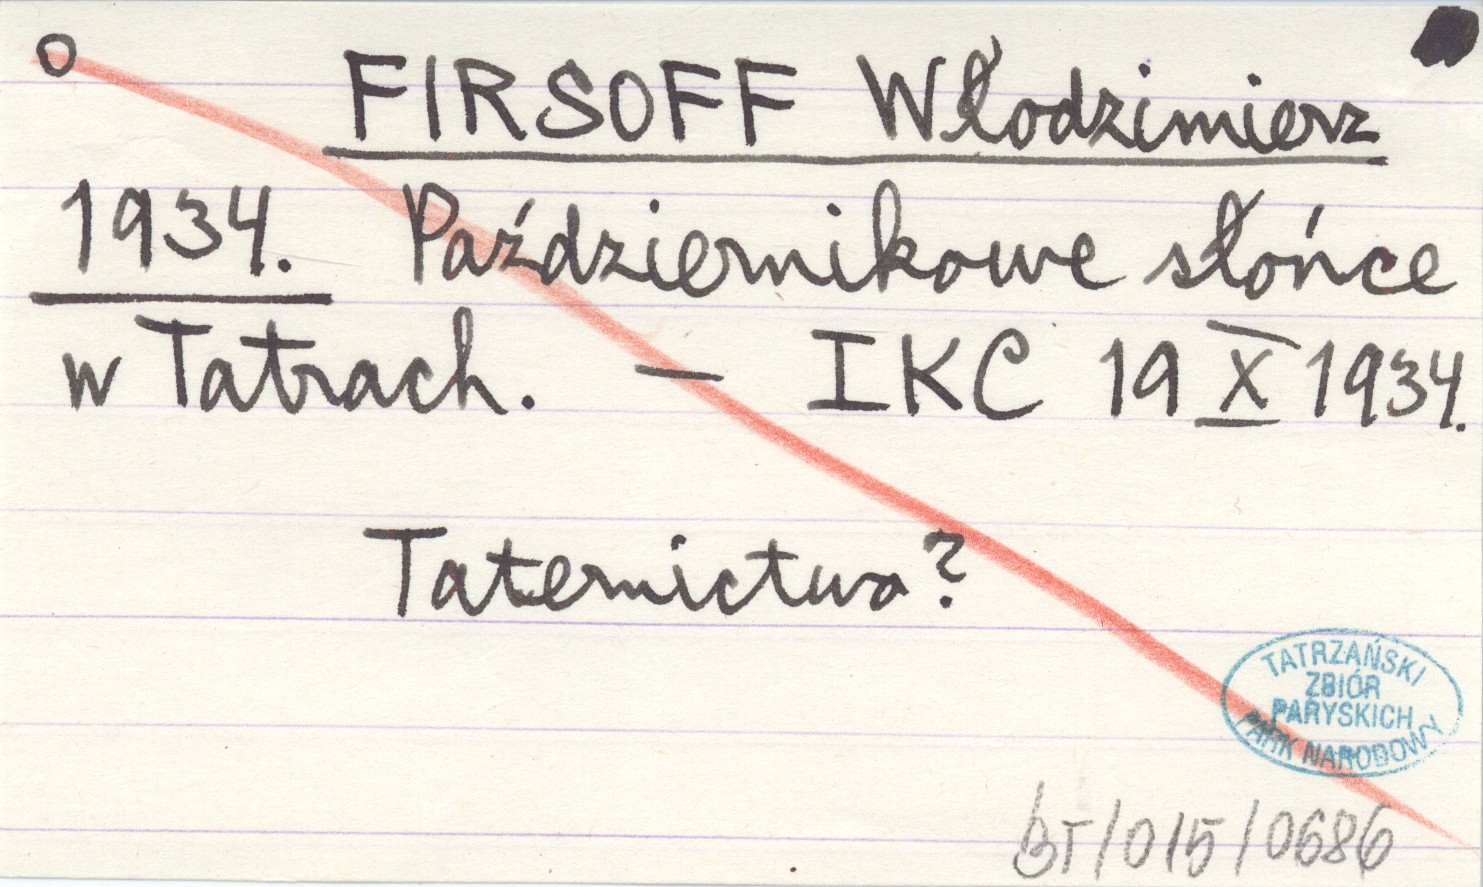 o
FIRSOFF Włodzimierz
1934. Październikowe słońce
w Tatrach. — IKC 19 X 1934.
Taternictwo?
TATRZAŃSKI
ZBIÓR
PARYSKICH
PARK NARODOWY
BT/015/0686